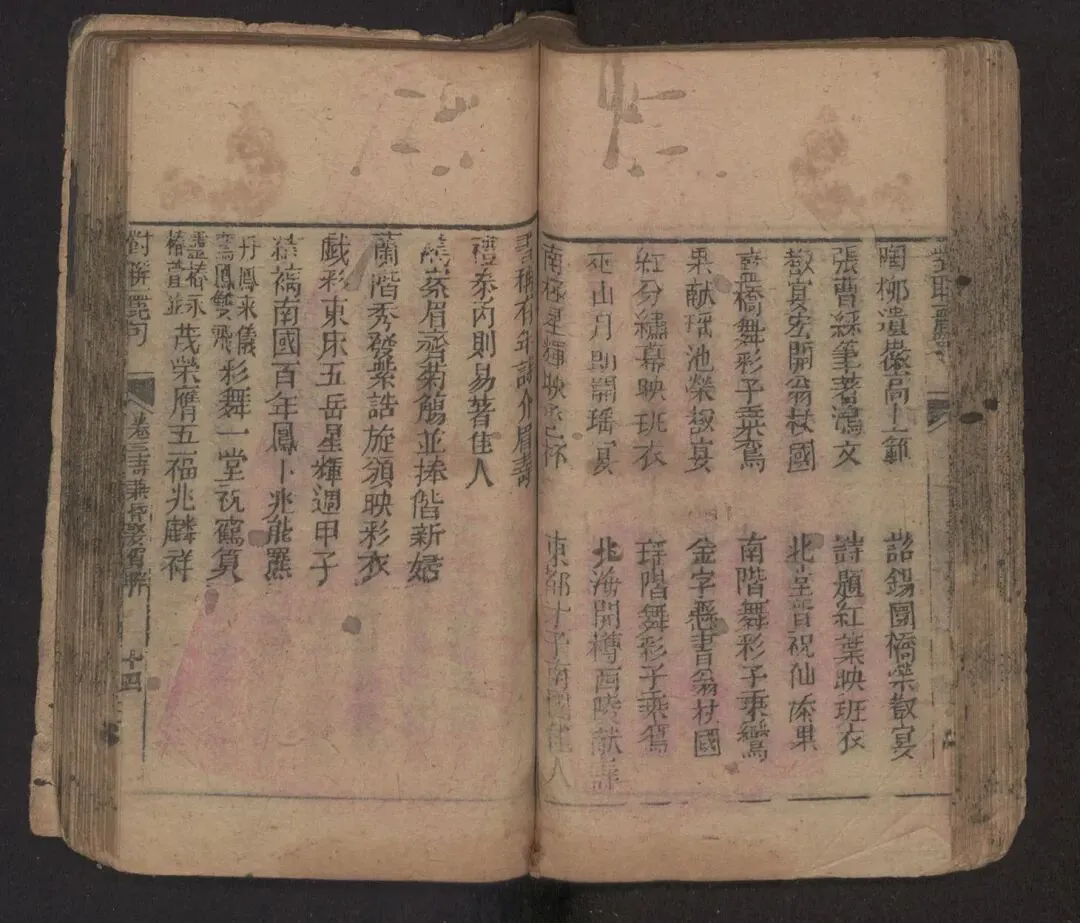 陶柳遺徽高士範
詔錫圜橋榮敬宴
張曹綵筆著鴻文
詩題紅葉映班衣
敬宴宏開翁杖國
北堂晋祝仙添果
喜橋舞彩子乘鸞
南階舞彩子乘鸞
果献瑶池榮敬宴
金字懸書翁杖國
紅分繡幕映班衣
琦階舞彩子乘鸞
巫山月朗開瑶宴
北海開樽西陵献
南極星輝映
東都才子南國佳人
書稱有年詩介眉壽
禮泰內則易著佳人
眉齊菊觴並捧偕新婚
蘭階秀發紫誥旋頒映彩衣
戲彩東床五岳星輝週甲子
南國百年鳳卜兆能羆
丹鳳来儀
鸞鳳雙飛
彩舞一堂祝鶴算
靈椿永
椿萱並
茂榮膺五福兆麟祥
對聯
卷三
十四